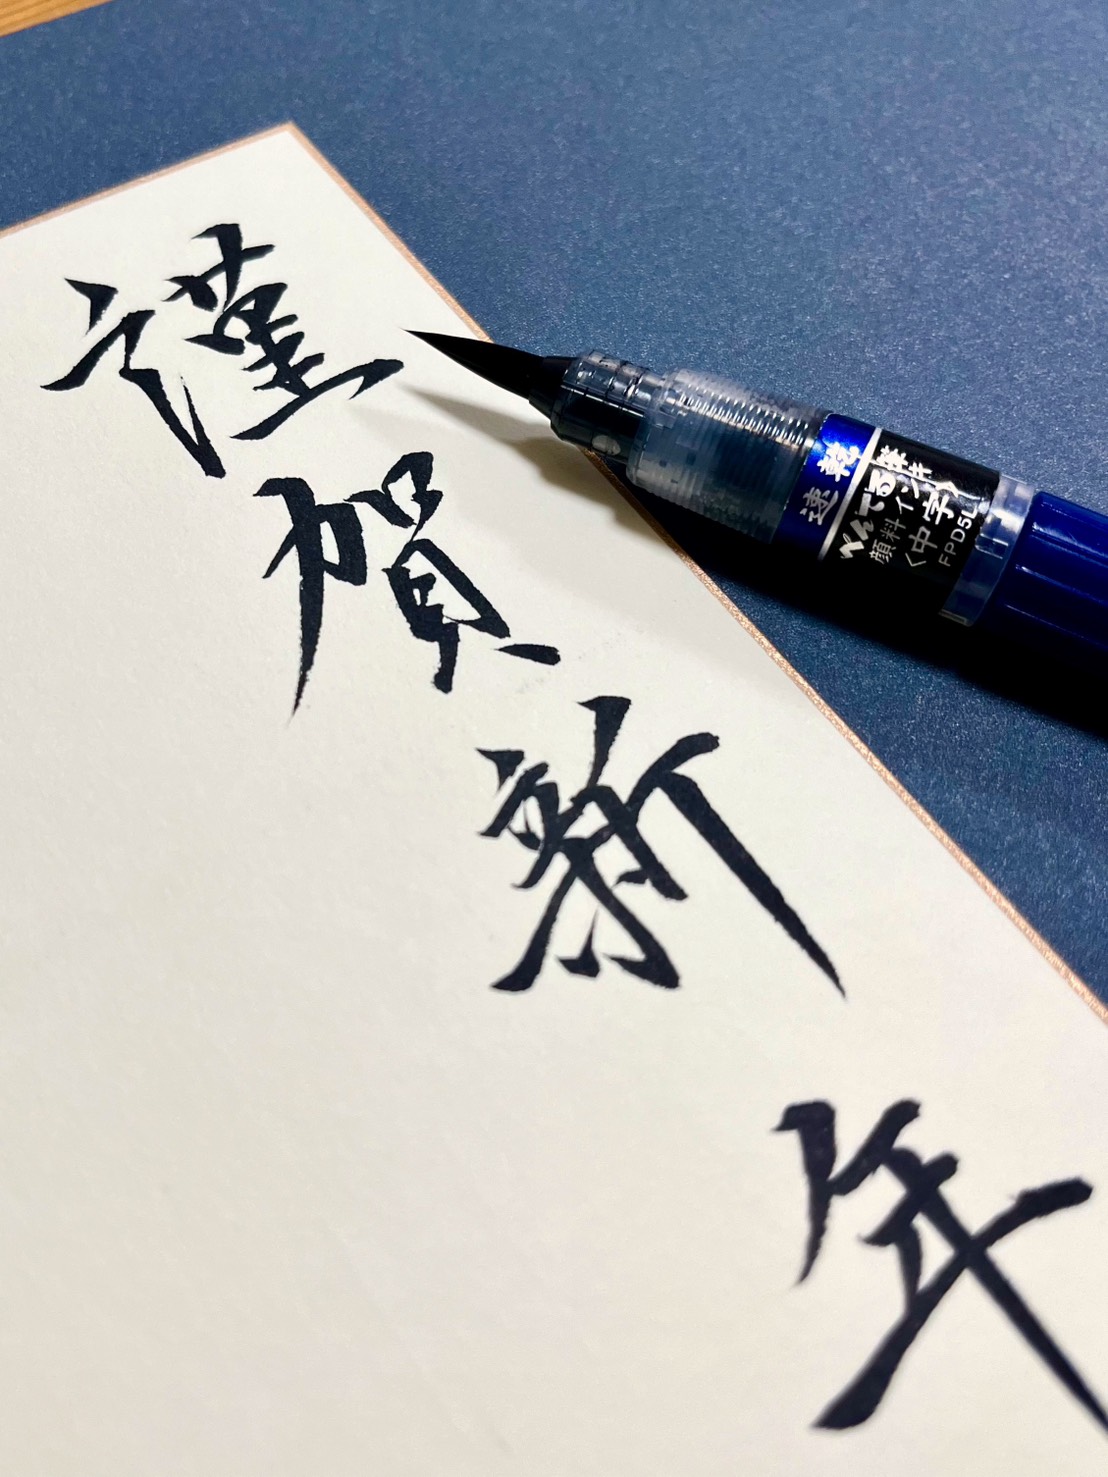 謹賀新年
速乾
ぺんてる筆
顔料インキ
〈中字〉
FPD5L